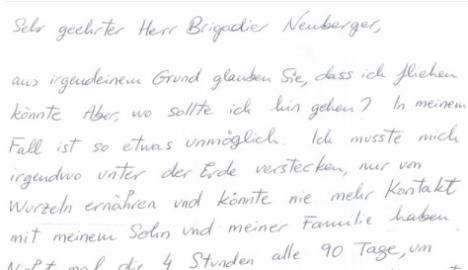 Sehr geehrter Herr Brigadier Neuberger,
aus irgendeinem Grund glauben Sie, dass ich fliehen
könnte. Aber, wo sollte ich hin gehen? In meinem
Fall ist so etwas unmöglich. Ich musste mich
irgendwo unter der Erde verstecken, nur von
Wurzeln ernähren und könnte nie mehr Kontakt
mit meinem Sohn und meiner Familie haben.
Nicht mal die 4 Stunden alle 90 Tage, um